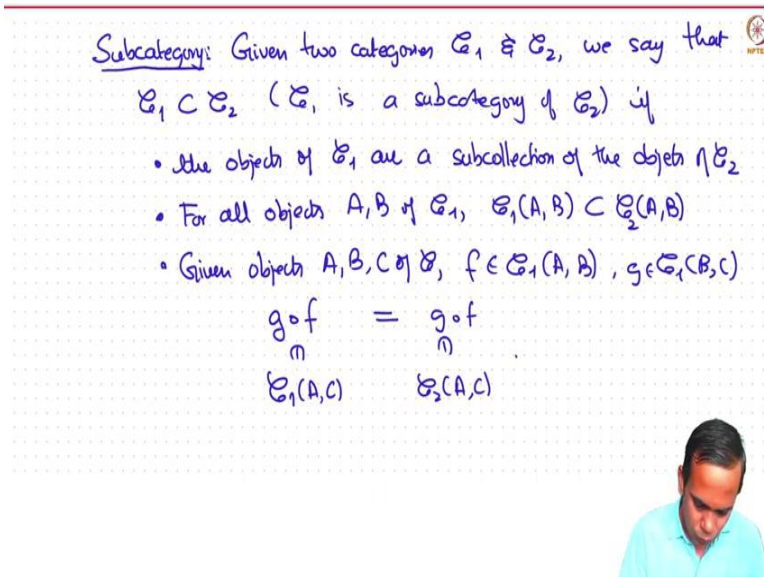 Subcategory: Given two categories 𝒞₁ & 𝒞₂, we say that
𝒞₁ ⊂ 𝒞₂ (𝒞₁ is a subcategory of 𝒞₂) if
• the objects of 𝒞₁ are a subcollection of the objets of 𝒞₂
• For all objects A, B of 𝒞₁, 𝒞₁(A, B) ⊂ 𝒞₂(A, B)
• Given objects A, B, C of 𝒞, f ∈ 𝒞₁(A, B), g ∈ 𝒞₁(B, C)
g∘f = g∘f
∈ ∈
𝒞₁(A, C) 𝒞₂(A, C)
NPTEL